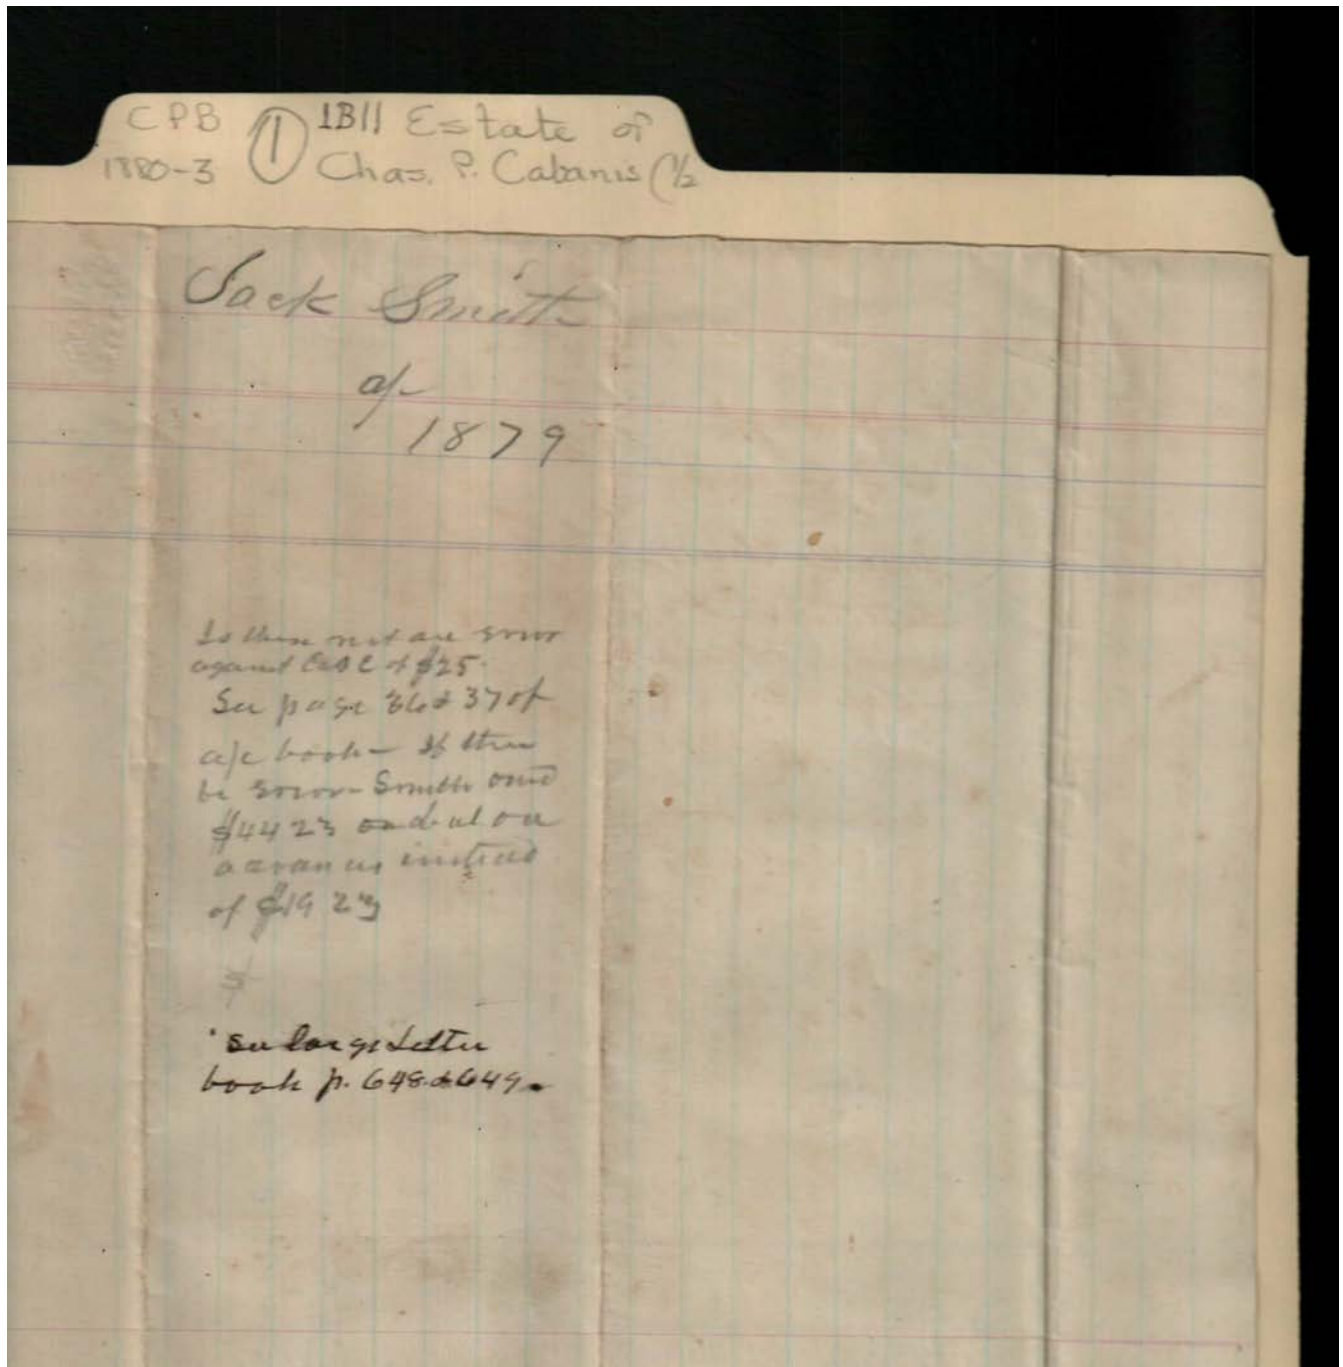 CPB ① 1B11 Estate of
1880-3 Chas. P. Cabanis (1/2
Jack Smith
a/c
1879
Is there not an error
against C&BC of $25.
See page 36 & 37 of
a/c book - If there
be error - Smith owed
$44 23 bal on
advances instead
of $19 23
See large Letter
book p. 648 & 649.